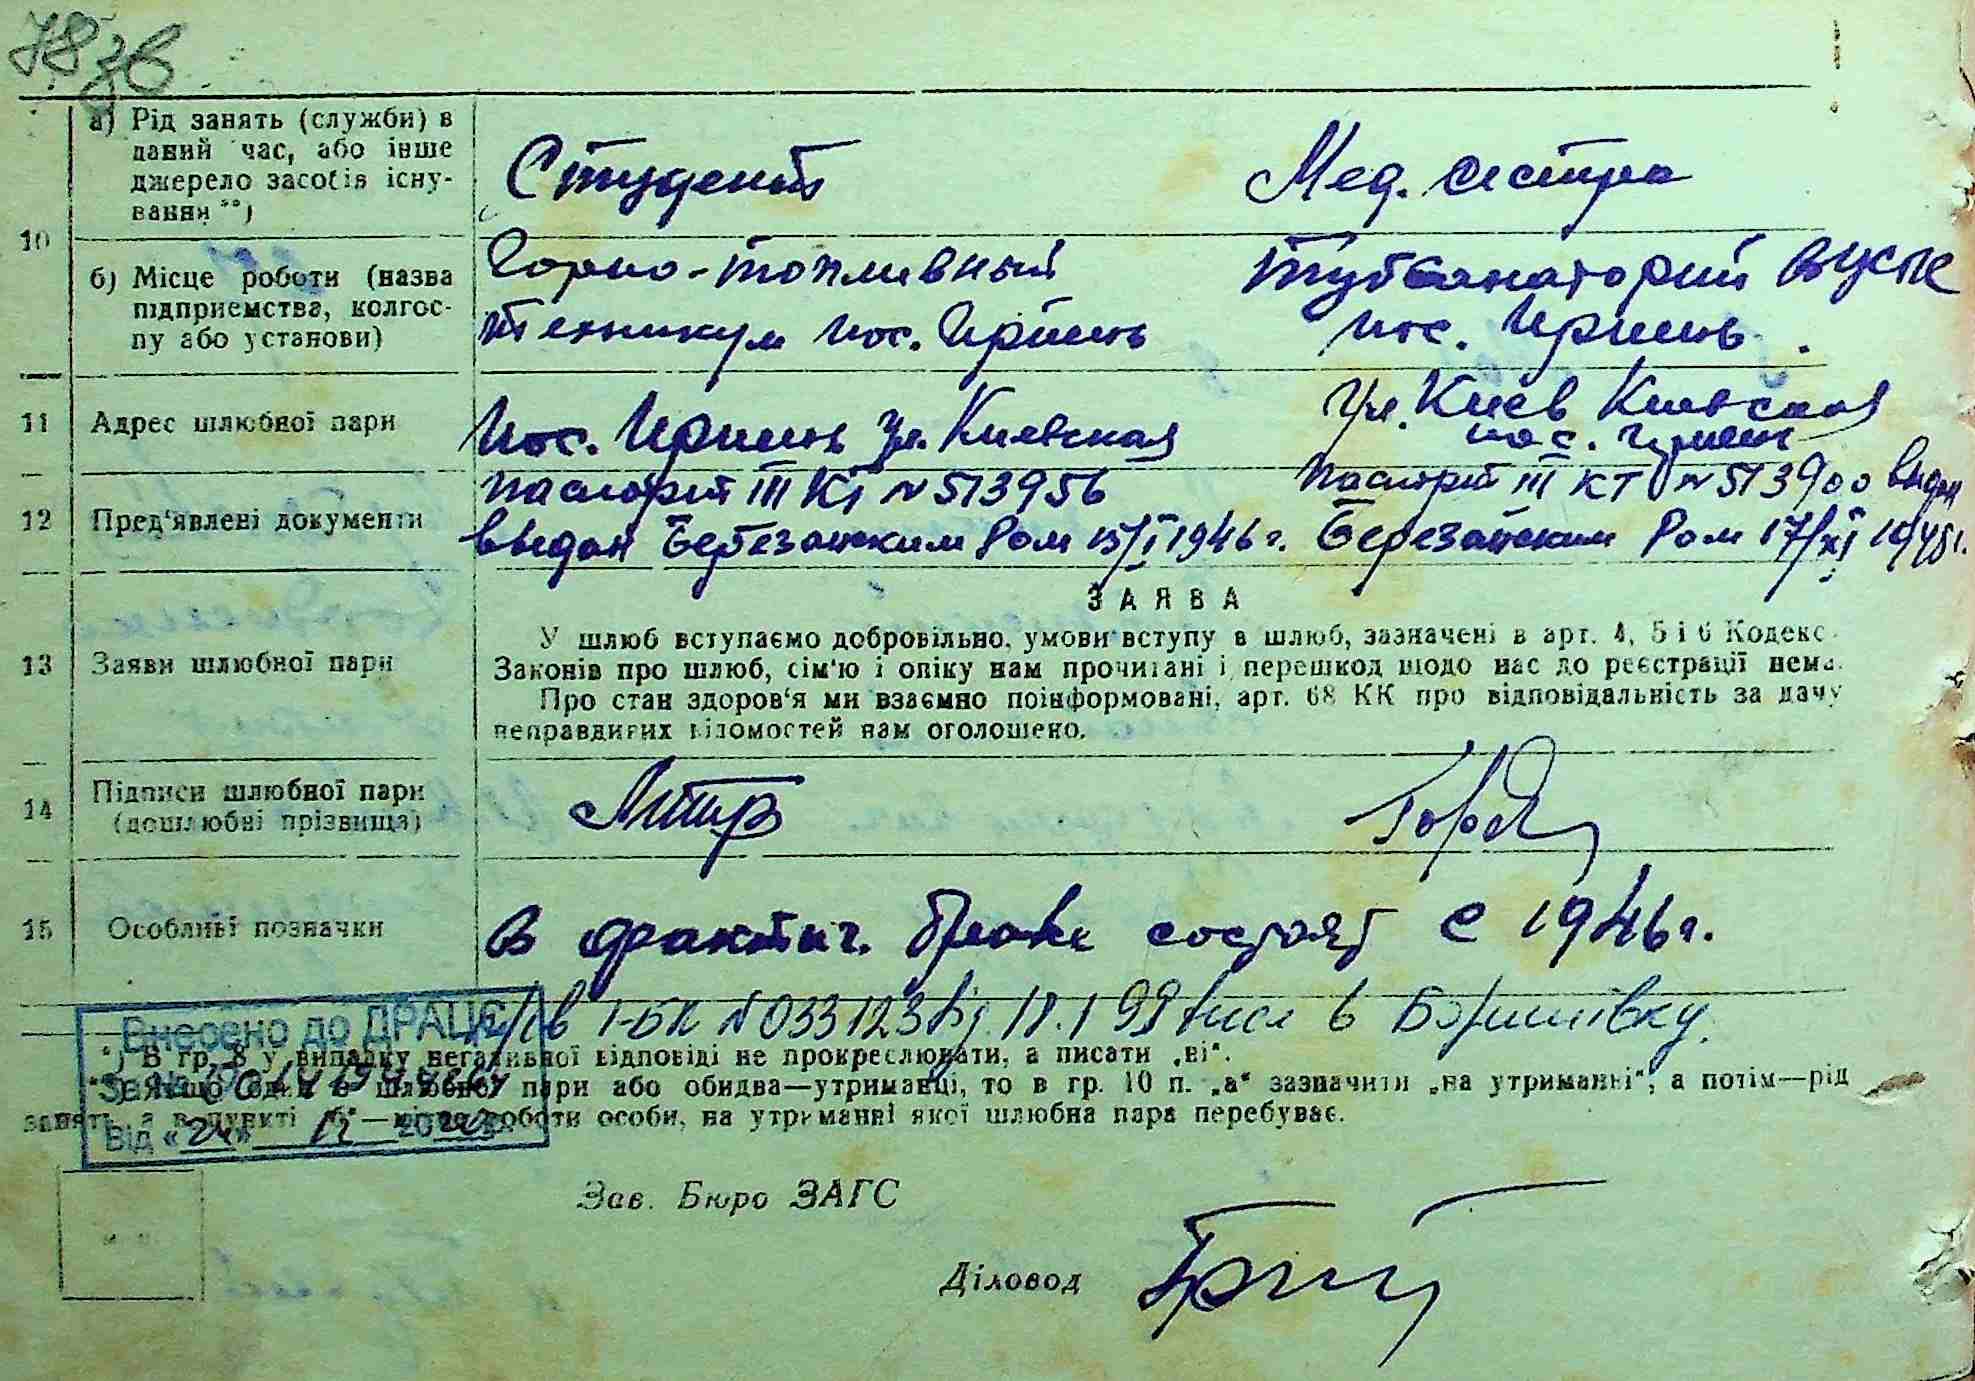 78 зв
а) Рід занять (служби) в
даний час, або інше
джерело засобів існу-
вання **)
Студент
Мед. сестра
10
б) Місце роботи (назва
підприємства, колгос-
пу або установи)
Горно-топливный
техникум пос. Ирпень
Тубсанаторий
пос. Ирпень.
11
Адрес шлюбної пари
пос. Ирпень ул. Киевская
Киев Киевская
пос. Ирпень
12
Пред'явлені документи
паспорт III КТ № 513956
выдан Березанским Ром 15/I 1946 г.
паспорт III КТ № 513900 выдан
Березанским Ром 17/XI 1945 г.
ЗАЯВА
13
Заяви шлюбної пари
У шлюб вступаємо добровільно, умови вступу в шлюб, зазначені в арт. 4, 5 і 6 Кодекс
Законів про шлюб, сім'ю і опіку нам прочитані і перешкод щодо нас до реєстрації нема.
Про стан здоров'я ми взаємно поінформовані, арт. 68 КК про відповідальність за дачу
неправдивих відомостей нам оголошено.
14
Підписи шлюбної пари
(дошлюбні прізвища)
15
Особливі позначки
в фактич. браке состоят с 1946 г.
I-БК № 033123 від 18.1 99 в
Внесено до ДРАЦС
За №
Від « 24 » 12 2020
*) В гр. 8 у випадку негативної відповіді не прокреслювати, а писати „ні".
**) Якщо один з шлюбної пари або обидва—утриманці, то в гр. 10 п. „а" зазначити „на утриманні", а потім—рід
занять, а в пункті „б"—місце роботи особи, на утриманні якої шлюбна пара перебуває.
Зав. Бюро ЗАГС
Діловод